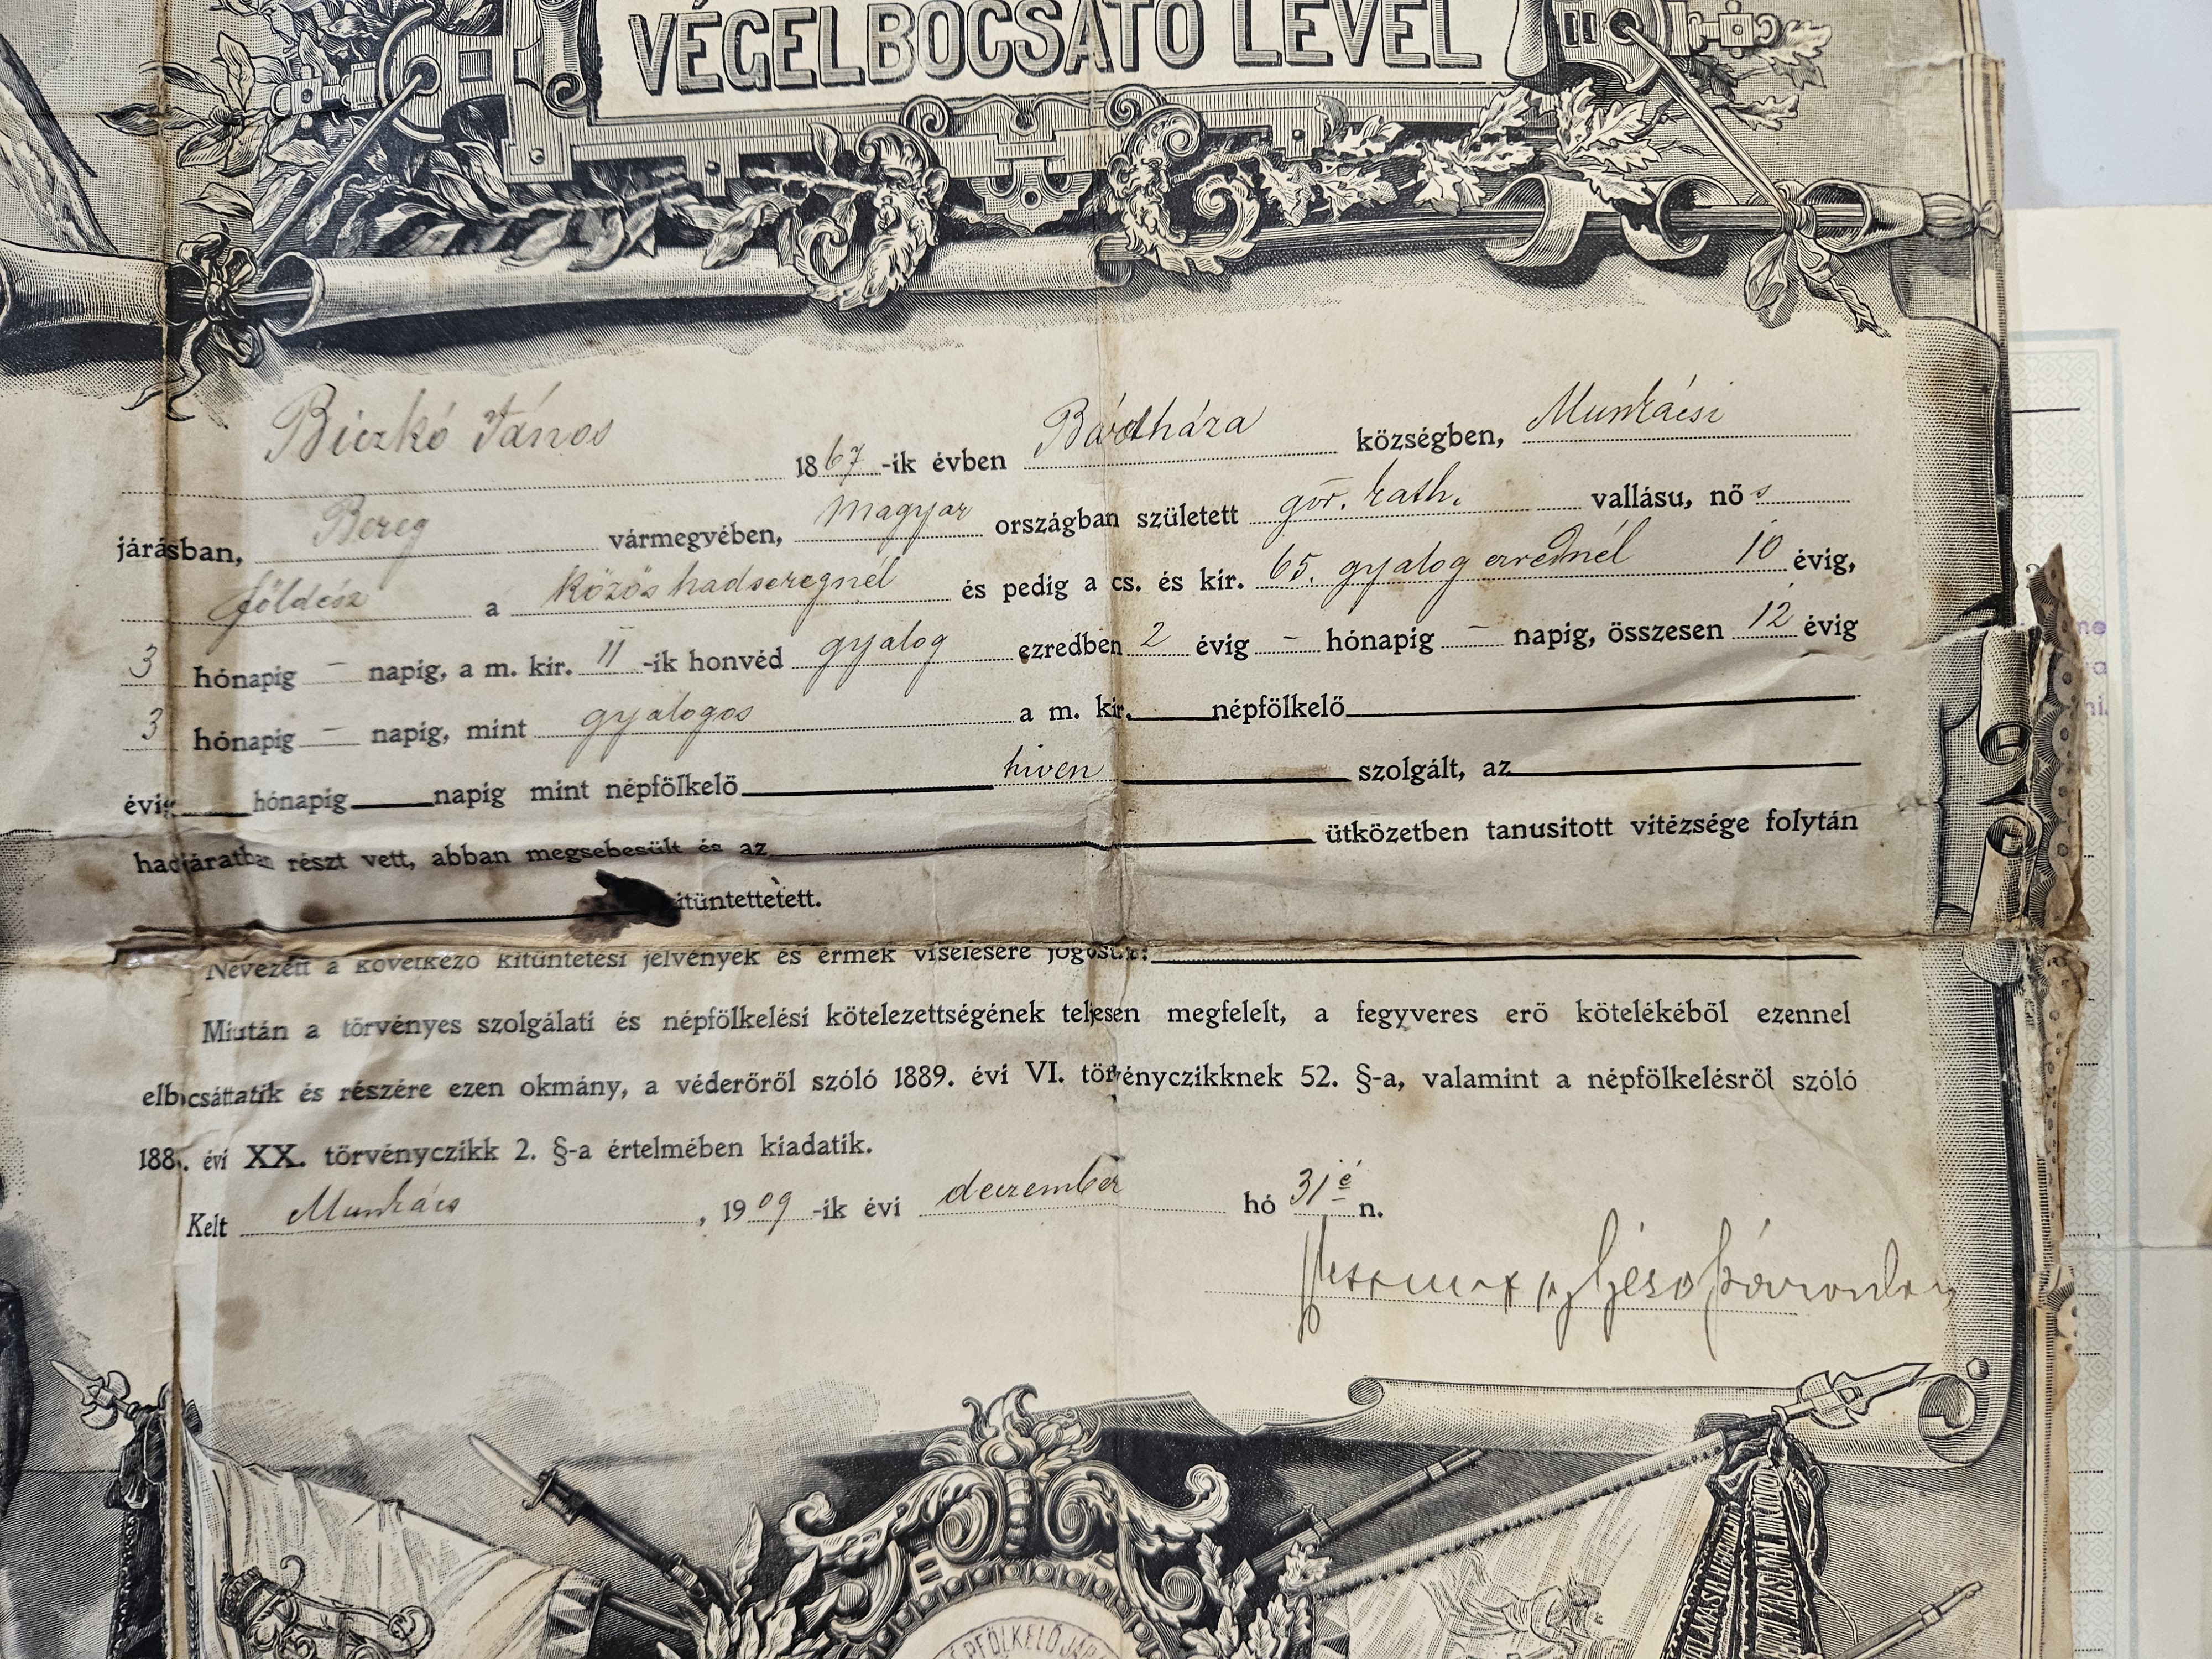 VÉGELBOCSÁTÓ LEVÉL
Biczkó János 1867-ik évben Bárdháza községben, Munkácsi
járásban, Bereg vármegyében, magyar országban született gör. kath. vallásu, nős
földész a közös hadseregnél és pedig a cs. és kir. 65. gyalog ezrednél 10 évig,
3 hónapig — napig, a m. kir. 11-ik honvéd gyalog ezredben 2 évig — hónapig — napig, összesen 12 évig
3 hónapig — napig, mint gyalogos a m. kir. népfölkelő
évig hónapig napig mint népfölkelő hiven szolgált, az
hadjáratban részt vett, abban megsebesült és az ütközetben tanusitott vitézsége folytán
itüntettetett.
Nevezett a következő kitüntetési jelvények és érmek viselésére jogosult:
Miután a törvényes szolgálati és népfölkelési kötelezettségének teljesen megfelelt, a fegyveres erő kötelékéből ezennel
elbocsáttatik és részére ezen okmány, a véderőről szóló 1889. évi VI. törvényczikknek 52. §-a, valamint a népfölkelésről szóló
188. évi XX. törvényczikk 2. §-a értelmében kiadatik.
Kelt Munkács, 1909-ik évi deczember hó 31é n.
NÉPFÖLKELŐ JÁR